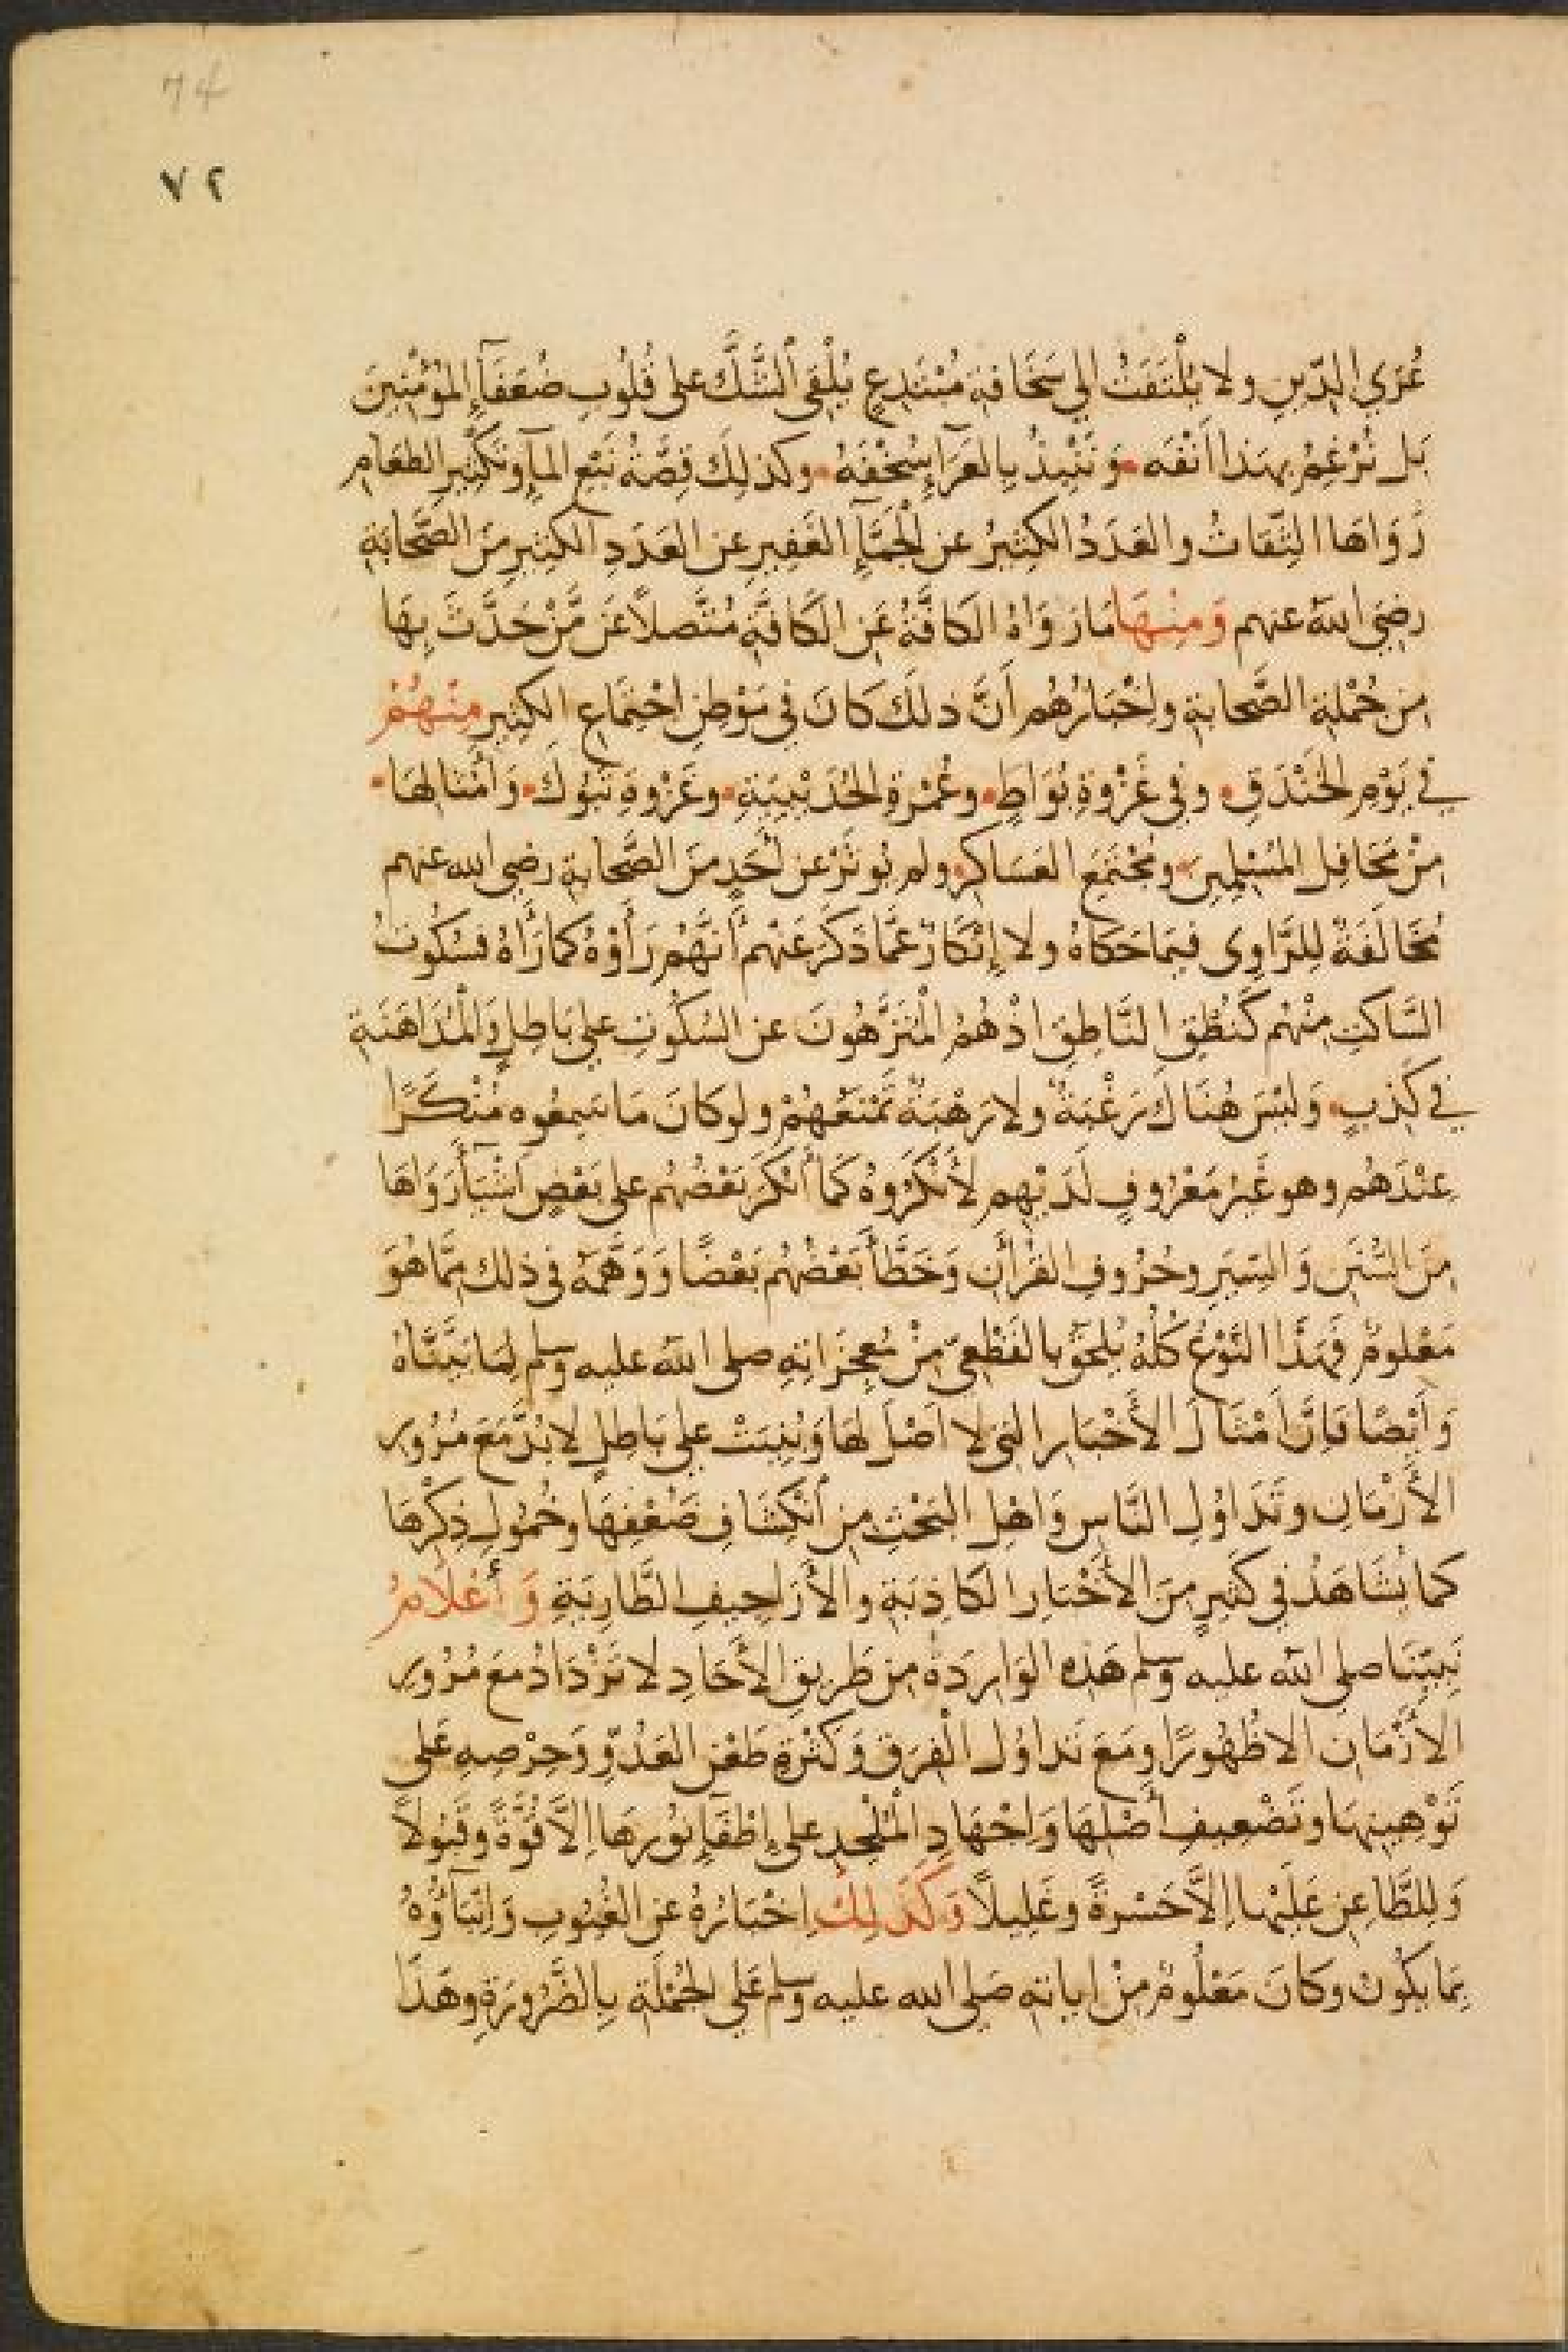 74
٧٢
عُرَي الدِّينِ ولا يُلْتَفَتُ الي سَخَافَةِ مُبْتَدِعٍ يُلْقِي الشَّكَّ على قُلُوبِ ضُعَفَآءِ المؤمِنِينَ
بَل نُرْغِمُ بهَذا اَنْفَه وَ نَنْبِذُ بالعَرَآءِ سُخْفَهُ وكذلِكَ قِصَّةُ نَبْعِ المآءِ وتَكْثِيرِ الطعَامِ
رَوَاهَا الثِّقاتُ والعَدَدُ الكَثِيرُ عن الْجَمَّآءِ الغَفِيرِ عن العَدَدِ الكَثِيرِ مِنَ الصَّحَابَةِ
رضِيَ اللهُ عنهم وَمِنْهَا مَا رَوَاهُ الكَافَّةُ عَنِ الكَافَّةِ مُتَّصلاً عَن مَّنْ حَدَّثَ بِهَا
مِن جُمْلةِ الصَّحابةِ واِخْبَارُهُم اَنَّ ذلكَ كَانَ في مَوْطِنِ اجْتِمَاعِ الكَثِيرِ مِنْهُمْ
في يَوْمِ الخَنْدَقِ وفي غَزْوةِ بُوَاطٍ وعُمْرةِ الحُدَيْبِيَةِ وغَزْوةِ تَبُوكَ وَاَمْثَالِهَا
مِنْ مَحَافِلِ المُسْلِمِينَ ومُجْتَمَعِ العَسَاكِرِ ولم يُوثَرْ عن اَحَدٍ مِنَ الصَّحَابةِ رضي الله عنهم
مُخَالَفَةٌ لِلرَّاوِي فيمَا حَكَاهُ ولا إِنْكَارٌ عَمَّا ذَكَرَ عَنْهم أَنَّهُم رَأَوْهُ كما رَاَهُ فسُكُوتُ
السَّاكتِ مِنْهُم كَنُطْقِ النَّاطِقِ اذْ هُمُ الْمُنَزَّهُونَ عن السُكُوتِ علي بَاطِلٍ وَالْمُدَاهَنَةِ
في كَذِبٍ وَليْسَ هُنَاكَ رَغْبَةٌ ولا رَهْبَةٌ تَمْنَعُهُمْ ولو كانَ مَا سَمِعُوه مُنْكَرًا
عِنْدَهُم وهو غَيْرُ مَعْرُوفٍ لَدَيْهِم لأَنْكَرُوهُ كَمَا أَنْكَرَ بَعْضُهُم على بَعْضٍ اَشْيَآءَ رَوَاهَا
مِنَ السُّنَنِ وَالسِّيَرِ وحُرُوفِ القُرْأَنِ وَخَطَّأَ بَعْضُهُم بَعْضًا وَوَهَّمَهُ في ذلك مِمَّا هُوَ
مَعْلومٌ فَهَذَا النَّوْعُ كُلُّهُ يُلحَقُ بالقَطْعِيِّ مِنْ مُعجِزَاتِهِ صلي الله عليه وسلم لِمَا بَيَّنَّاهُ
وَأَيْضًا فَاِنَّ اَمْثَالَ الأَخْبَارِ التي لا اَصْلَ لهَا وَبُنِيَتْ علي بَاطِلٍ لابُدَّ مَعَ مُرُورِ
الأَزْمَانِ وتَدَاوُلِ النَّاسِ وَاهْلِ البَحْثِ مِن اَنْكِشَافِ ضَعْفِهَا وخُمُولِ ذِكْرِهَا
كما يُشَاهَدُ في كَثيرٍ مِنَ الأَخْبَارِ الكَاذِبَةِ والأَرَاجِيفِ الطَّارِيَةِ وَأَعْلَامُ
نَبِيِّنَا صلي الله عليه وسلم هَذه الوَارِدَةُ مِن طَرِيقِ الأَحَادِ لا تَزْدَادُ مَعَ مُرُورِ
الأَزْمَانِ الا ظُهُورًا ومَعَ تَداوُلِ الْفِرَقِ وَكَثْرَةِ طَعْنِ العَدُوِّ وَحِرْصِهِ عَلى
تَوْهِينِهَا وتَضْعِيفِ أَصْلِهَا وَاجْهَادِ الْمُلْحِدِ على إِطْفَآءِ نُورِهَا اِلاَّ قُوَّةً وقَبُولاً
وَلِلطَّاعِنِ عَلَيْهَا اِلاَّ حَسْرَةً وغَلِيلاً وَكَذَلِكَ اِخْبَارُهُ عن الغُيُوبِ وَاِنْبَآؤُهُ
بِمَا يَكُونُ وكَانَ مَعْلُومٌ مِنْ اياتهِ صَلي الله عليه وسلم عَلي الجُمْلَةِ بِالضَّرُورَةِ وهَذَا